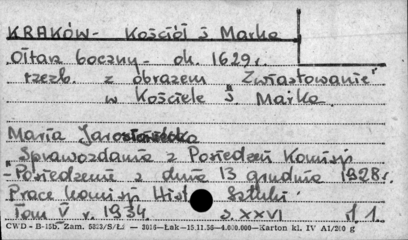 KRAKÓW - Kościół ś Marka
Ołtarz boczny - ok. 1629 r.
rzeźb. z obrazem "Zwiastowanie"
w Kościele ś. Marka
Maria Jarosławiecka
"Sprawozdania z Posiedzeń Komisji
- Posiedzenie z dnia 13 grudnia 1928 r.
Prace komisji Hist Sztuki
Tom V r. 1934 s. XXVI il 1
CWD - B-15b. Zam. 5323/S/Łi — 3016—Łak—15.11.56—4.000.000—Karton kl. IV A1/200 g